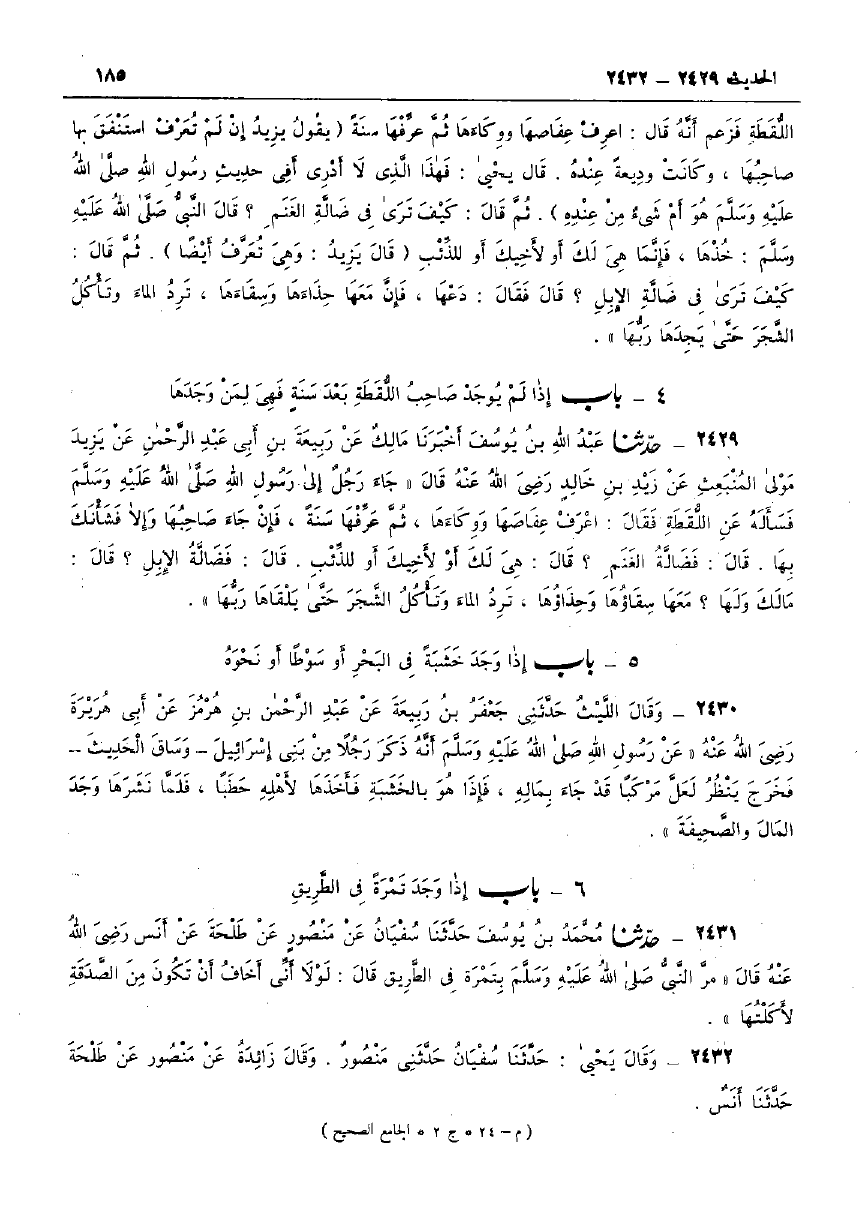 الحديث ٢٤٢٩ – ٢٤٣٢ ١٨٥
اللُّقَطَةِ فَزَعم أَنَّهُ قال : اعرِفْ عِفاصَها ووِكاءَها ثُمَّ عرِّفْها سنةً ( يقولُ يزيدُ إنْ لَمْ تُعرَفْ استَنْفَقَ بها
صاحِبُها ، وكانَتْ ودِيعةً عِندَه . قال يحْيىٰ : فَهٰذا الَّذِى لَا أَدْرِى أَفِى حدِيثِ رسُولِ اللهِ صلَّى اللهُ
علَيْهِ وَسَلَّمَ هُوَ أمْ شىءٌ مِنْ عِنْدِهِ ) . ثُمَّ قالَ : كَيْفَ تَرَىٰ فِى ضَالَّةِ الغَنَمِ ؟ قالَ النَّبىُّ صَلَّى اللهُ عَلَيْهِ
وسَلَّمَ : خُذْهَا ، فَإِنَّما هِىَ لَكَ أو لأخِيكَ أو للذِّئْبِ ( قالَ يَزِيدُ : وَهِىَ تُعَرَّفُ أيْضًا ) . ثُمَّ قالَ :
كَيْفَ تَرَىٰ فِى ضَالَّةِ الإِبِلِ ؟ قالَ فَقالَ : دَعْهَا ، فَإِنَّ مَعَهَا حِذَاءَهَا وَسِقاءَهَا ، تَرِدُ الماءَ وتَأْكُلُ
الشَّجَرَ حَتَّىٰ يَجِدَهَا رَبُّهَا » .
٤ – باب إِذَا لَمْ يُوجَدْ صَاحِبُ اللُّقَطَةِ بَعْدَ سَنَةٍ فَهِىَ لِمَنْ وَجَدَهَا
٢٤٢٩ – حدّثنا عَبْدُ اللهِ بنُ يُوسُفَ أَخْبَرَنَا مَالِكٌ عَنْ رَبِيعَةَ بنِ أبِى عَبدِ الرَّحْمٰنِ عَنْ يَزِيدَ
مَوْلَىٰ المُنْبَعِثِ عَنْ زَيْدِ بنِ خالِدٍ رَضِىَ اللهُ عَنْهُ قَالَ « جَاءَ رَجُلٌ إِلىٰ رَسُولِ اللهِ صَلَّىٰ اللهُ عَلَيْهِ وَسَلَّمَ
فَسَأَلَهُ عَنِ اللُّقَطَةِ فَقالَ : اعْرَفْ عِفاصَهَا وَوِكاءَهَا ، ثُمَّ عَرِّفْهَا سَنَةً ، فَإِنْ جَاءَ صَاحِبُهَا وَإِلاَّ فَشَأْنَكَ
بِهَا . قَالَ : فَضَالَّةُ الغَنَمِ ؟ قالَ : هِىَ لَكَ أوْ لأَخِيكَ أو للذِّئْبِ . قالَ : فَضَالَّةُ الإِبِلِ ؟ قالَ :
مَالَكَ وَلَهَا ؟ مَعَهَا سِقاؤُهَا وَحِذاؤُهَا ، تَرِدُ الماءَ وَتَأْكُلُ الشَّجَرَ حَتَّىٰ يَلْقَاهَا رَبُّهَا » .
٥ – باب إِذَا وَجَدَ خَشَبَةً فِى البَحْرِ أو سَوْطًا أو نَحْوَهُ
٢٤٣٠ – وَقَالَ اللَّيْثُ حَدَّثَنِى جَعْفَرُ بنُ رَبِيعَةَ عَن عَبدِ الرَّحْمٰنِ بنِ هُرْمُزَ عَنْ أبِى هُرَيْرَةَ
رَضِىَ اللهُ عَنْهُ « عَنْ رَسُولِ اللهِ صَلىٰ اللهُ عَلَيْهِ وَسَلَّمَ أَنَّهُ ذَكَرَ رَجُلًا مِنْ بَنِى إِسْرَائِيلَ – وَسَاقَ الْحَدِيثَ –
فَخَرَجَ يَنْظُرُ لَعَلَّ مَرْكَبًا قَدْ جَاءَ بِمَالِهِ ، فَإِذَا هُوَ بالخَشَبَةِ فَأَخَذَهَا لأَهْلِهِ حَطَبًا ، فَلَمَّا نَشَرَهَا وَجَدَ
المَالَ والصَّحِيفَةَ » .
٦ – باب إِذَا وَجَدَ تَمْرَةً فِى الطَّرِيقِ
٢٤٣١ – حدّثنا مُحَمَّدُ بنُ يُوسُفَ حَدَّثَنَا سُفْيَانُ عَنْ مَنْصُورٍ عَنْ طَلْحَةَ عَنْ أَنَسٍ رَضِىَ اللهُ
عَنْهُ قَالَ « مرَّ النَّبِىُّ صَلىٰ اللهُ عَلَيْهِ وَسَلَّمَ بِتَمْرَةٍ فِى الطَّرِيقِ قَالَ : لَوْلَا أَنِّى أخَافُ أنْ تَكُونَ مِنَ الصَّدَقَةِ
لأَكَلْتُهَا » .
٢٤٣٢ – وَقَالَ يَحْيىٰ : حَدَّثَنَا سُفْيَانُ حَدَّثَنِى مَنْصُورٌ . وَقَالَ زَائِدَةُ عَنْ مَنْصُورٍ عَنْ طَلْحَةَ
حَدَّثَنَا أَنَسٌ .
( م – ٢٤ * ج ٢ * الجامع الصحيح )